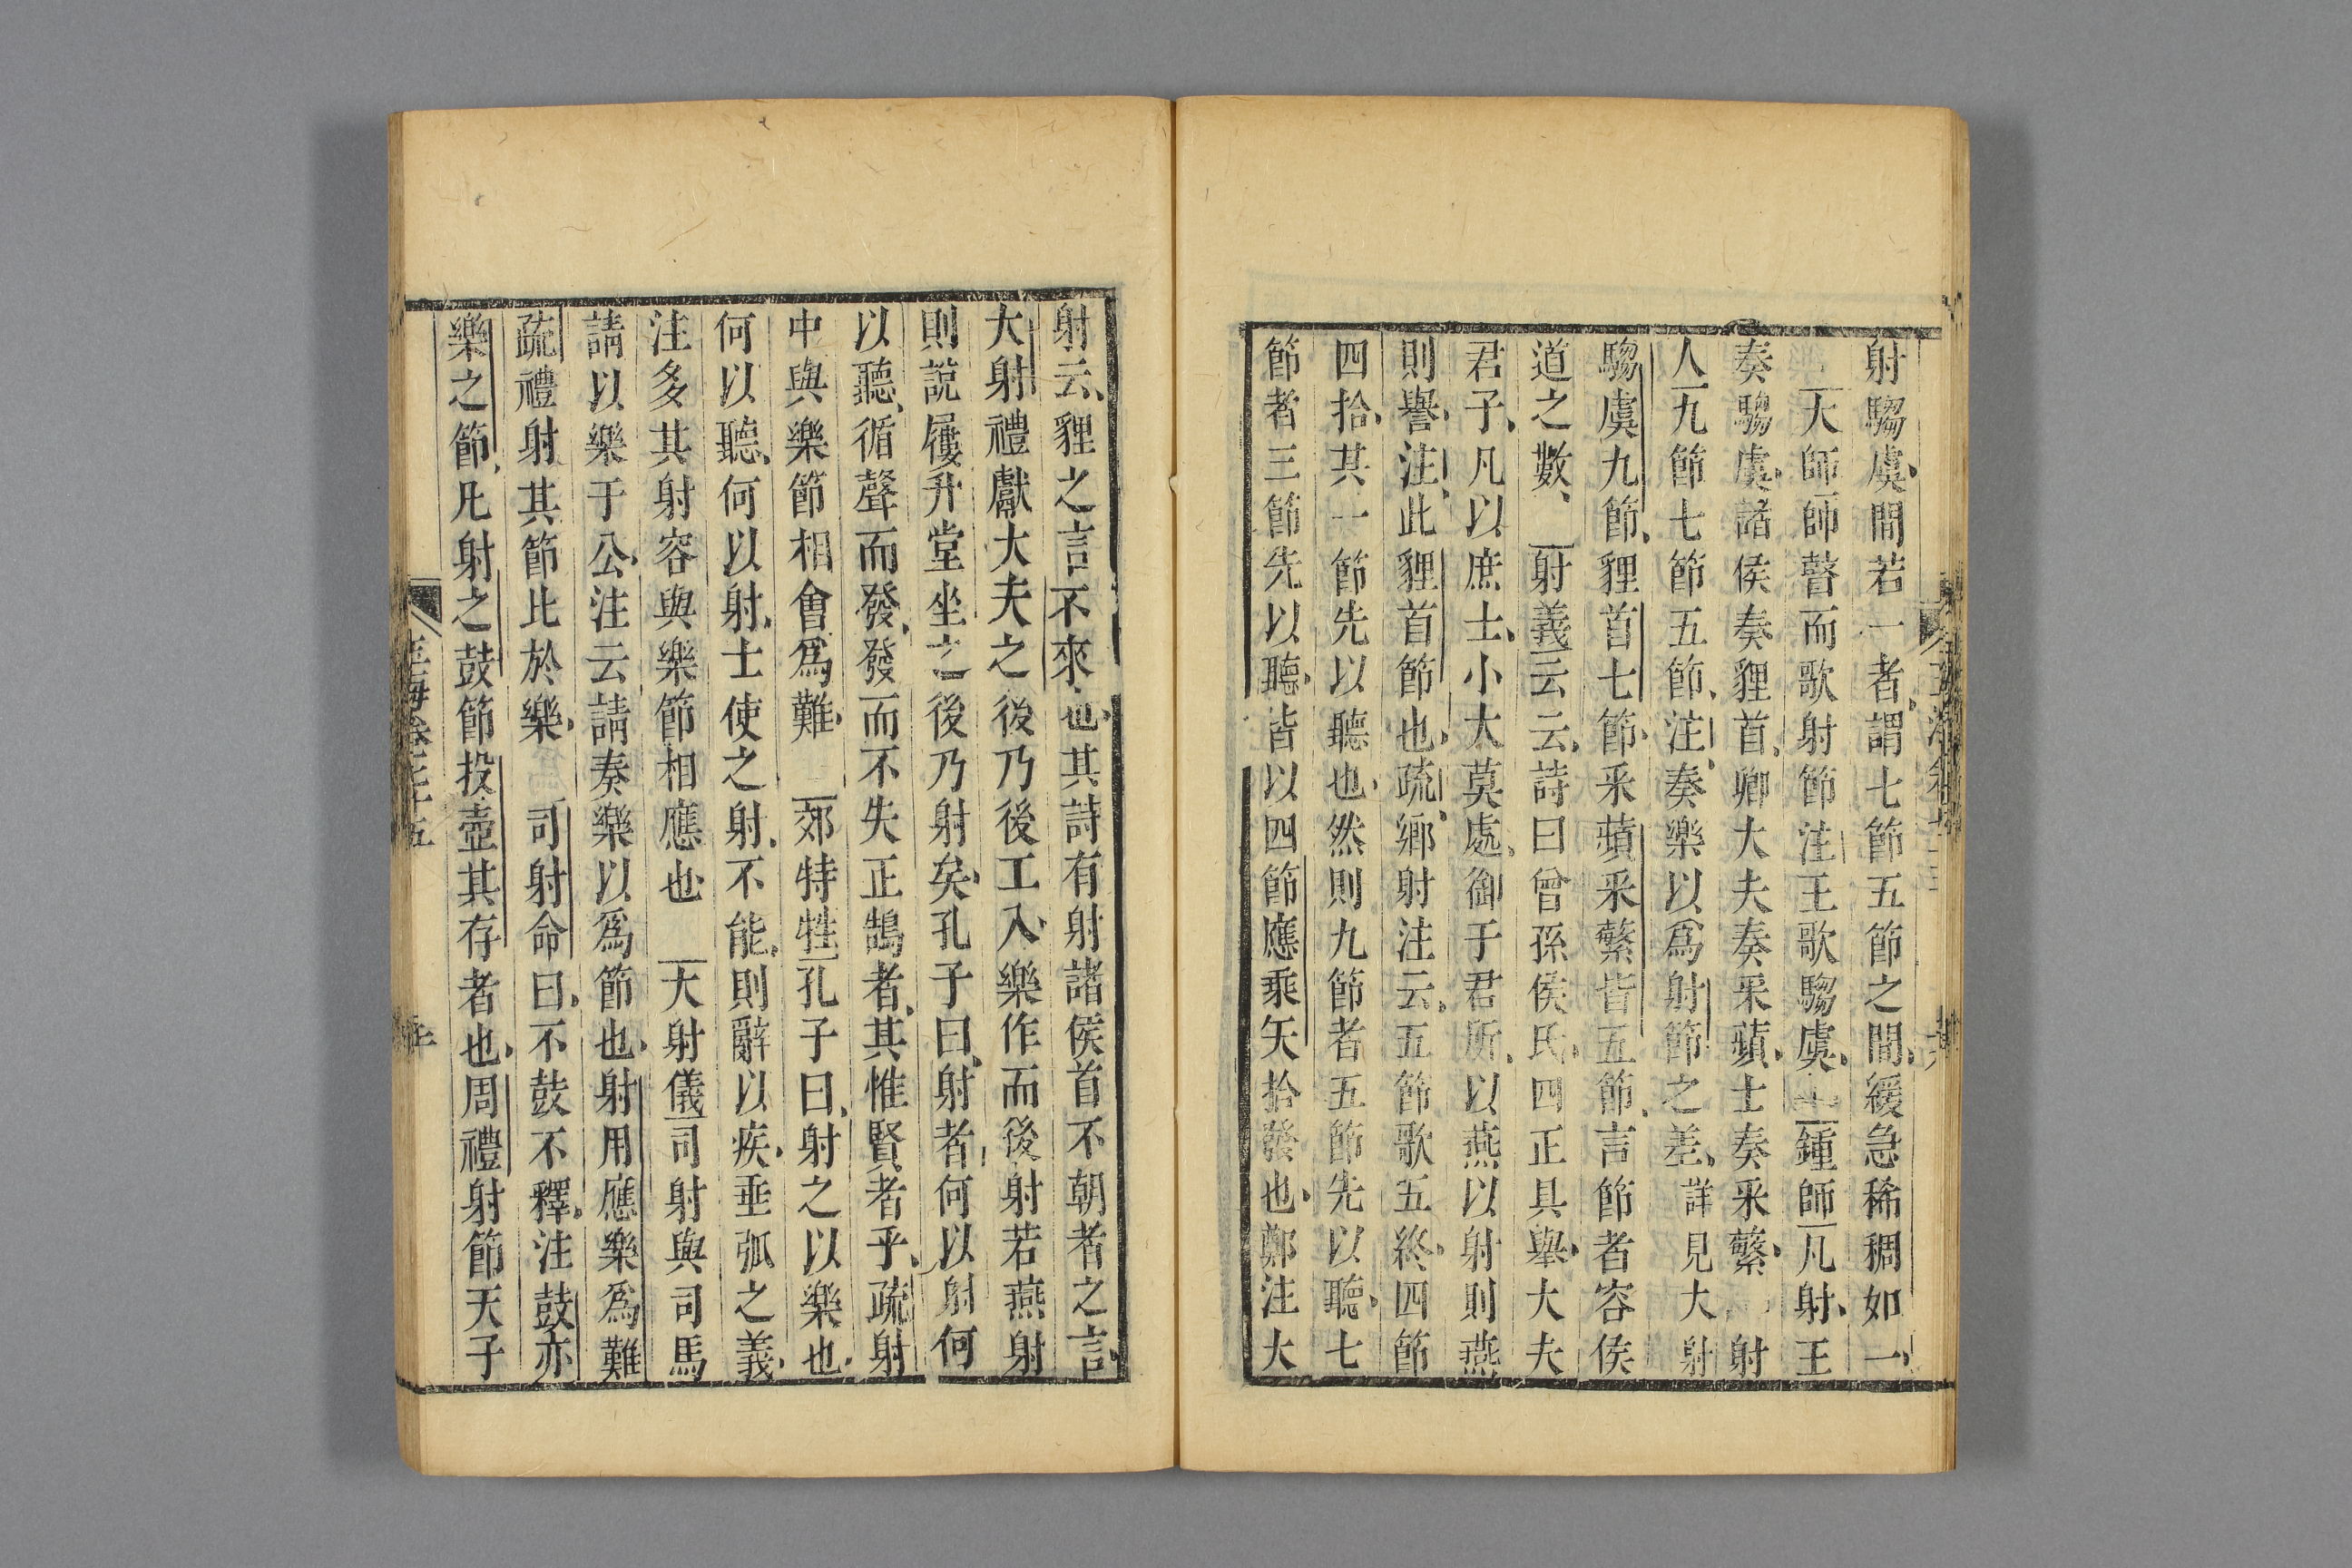 射騶虞間若一者謂七節五節之間緩急稀稠如一
大師師瞽而歌射節注王歌騶虞鍾師凡射王
奏騶虞諸侯奏貍首卿大夫奏采蘋士奏采蘩射
人九節七節五節注奏樂以爲射節之差詳見大射
騶虞九節貍首七節采蘋采蘩皆五節言節者容侯
道之數射義云云詩曰曾孫侯氏四正具舉大夫
君子凡以庶士小大莫處御于君所以燕以射則燕
則譽注此貍首節也疏鄉射注云五節歌五終四節
四拾其一節先以聽也然則九節者五節先以聽七
節者三節先以聽皆以四節應乘矢拾發也鄭注大
射云貍之言不來也其詩有射諸侯首不朝者之言
大射禮獻大夫之後乃後工入樂作而後射若燕射
則說屨升堂坐之後乃射矣孔子曰射者何以射何
以聽循聲而發發而不失正鵠者其惟賢者乎疏射
中與樂節相會爲難郊特牲孔子曰射之以樂也
何以聽何以射士使之射不能則辭以疾垂弧之義
注多其射容與樂節相應也大射儀司射與司馬
請以樂于公注云請奏樂以爲節也射用應樂爲難
疏禮射其節比於樂司射命曰不鼓不釋注鼓亦
樂之節凡射之鼓節投壺其存者也周禮射節天子